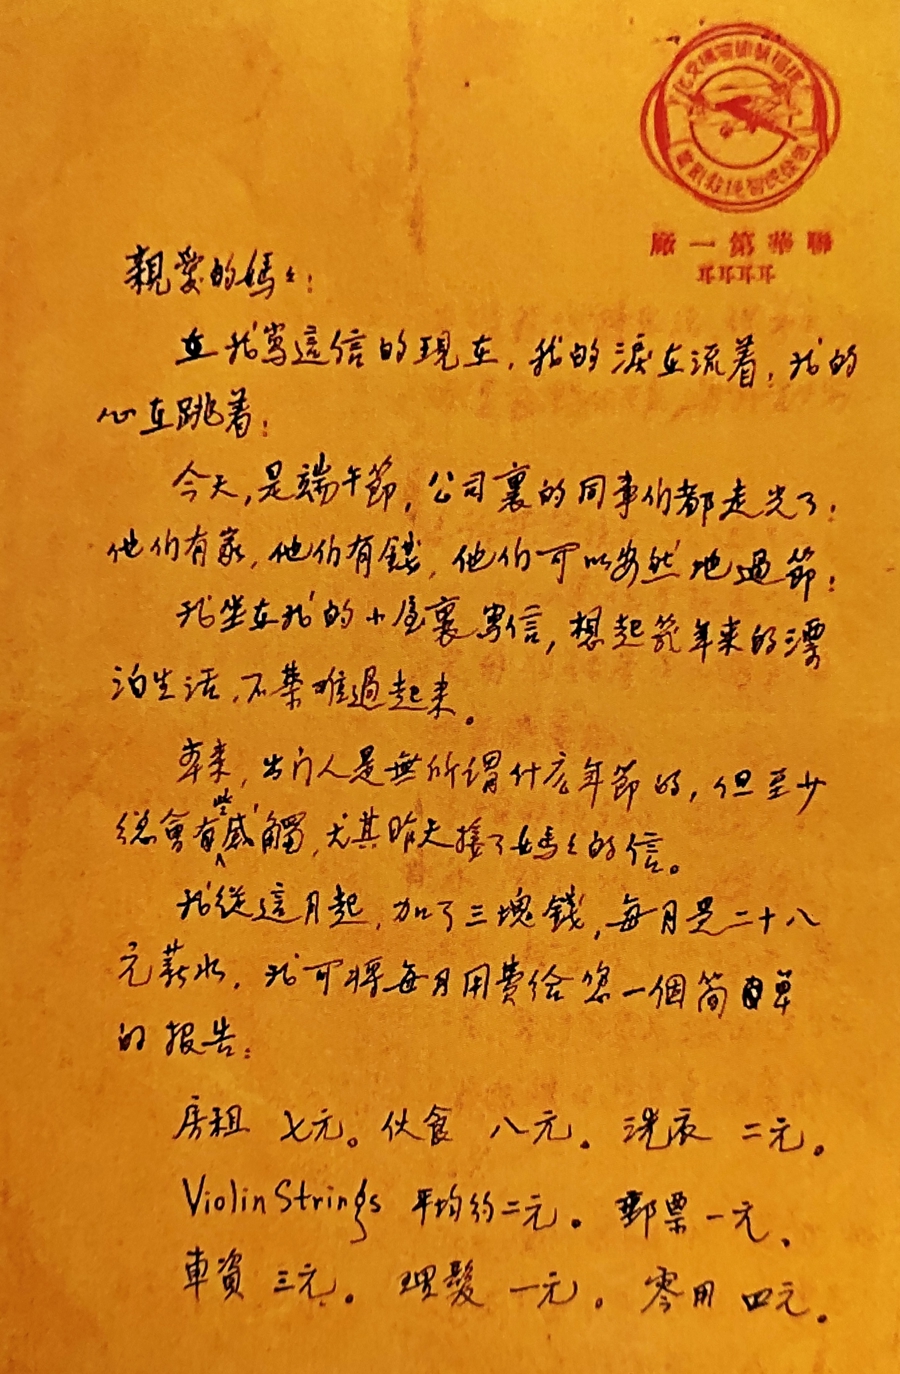 廠一第華聯
親愛的媽々：
在我寫這信的現在，我的淚在流着；我的
心在跳着；
今天，是端午節，公司裏的同事们都走光了；
他们有家，他们有錢，他们可以安然地過節；
我坐在我的小屋裏寫信，想起幾年來的漂
泊生活，不禁难過起来。
本来，出门人是無所謂什么年節的，但至少
總會有些感觸，尤其昨天接了媽々的信。
我從這月起，加了三塊錢，每月是二十八
元薪水，我可將每月用費給您一個简單
的报告：
房租 七元。伙食 八元。洗衣 二元。
Violin Strings 平均約二元。郵票一元、
車資 三元。理髮 一元。零用 四元。